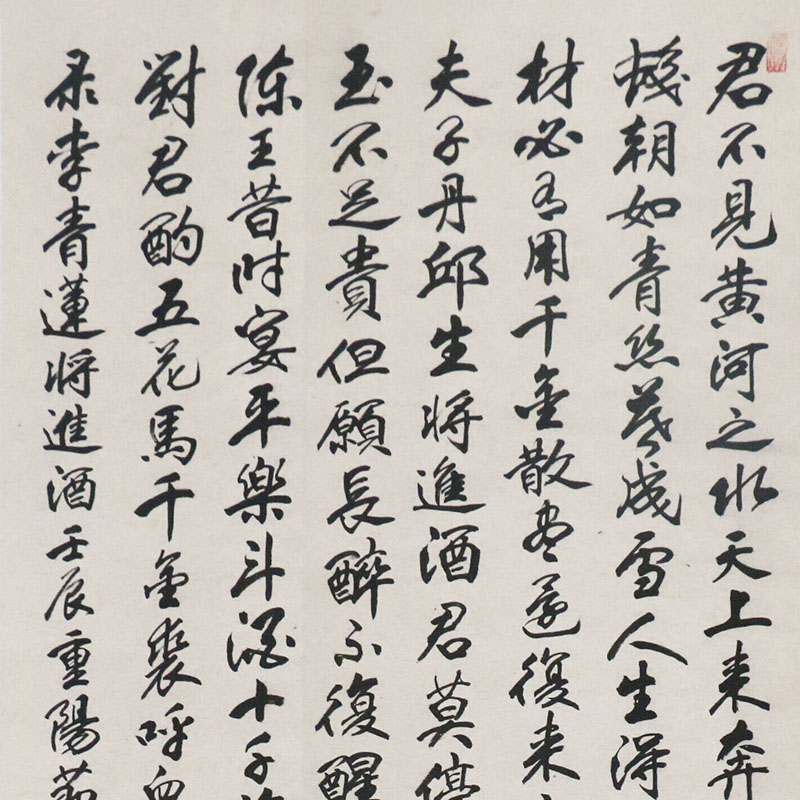 君不見黄河之水天上来奔
朝如青丝暮成雪人生得
材必有用千金散尽還復来
夫子丹邱生将進酒君莫停
玉不足貴但願長醉不復醒
陈王昔时宴平樂斗酒十千
對君酌五花馬千金裘呼
录李青蓮将進酒壬辰重陽